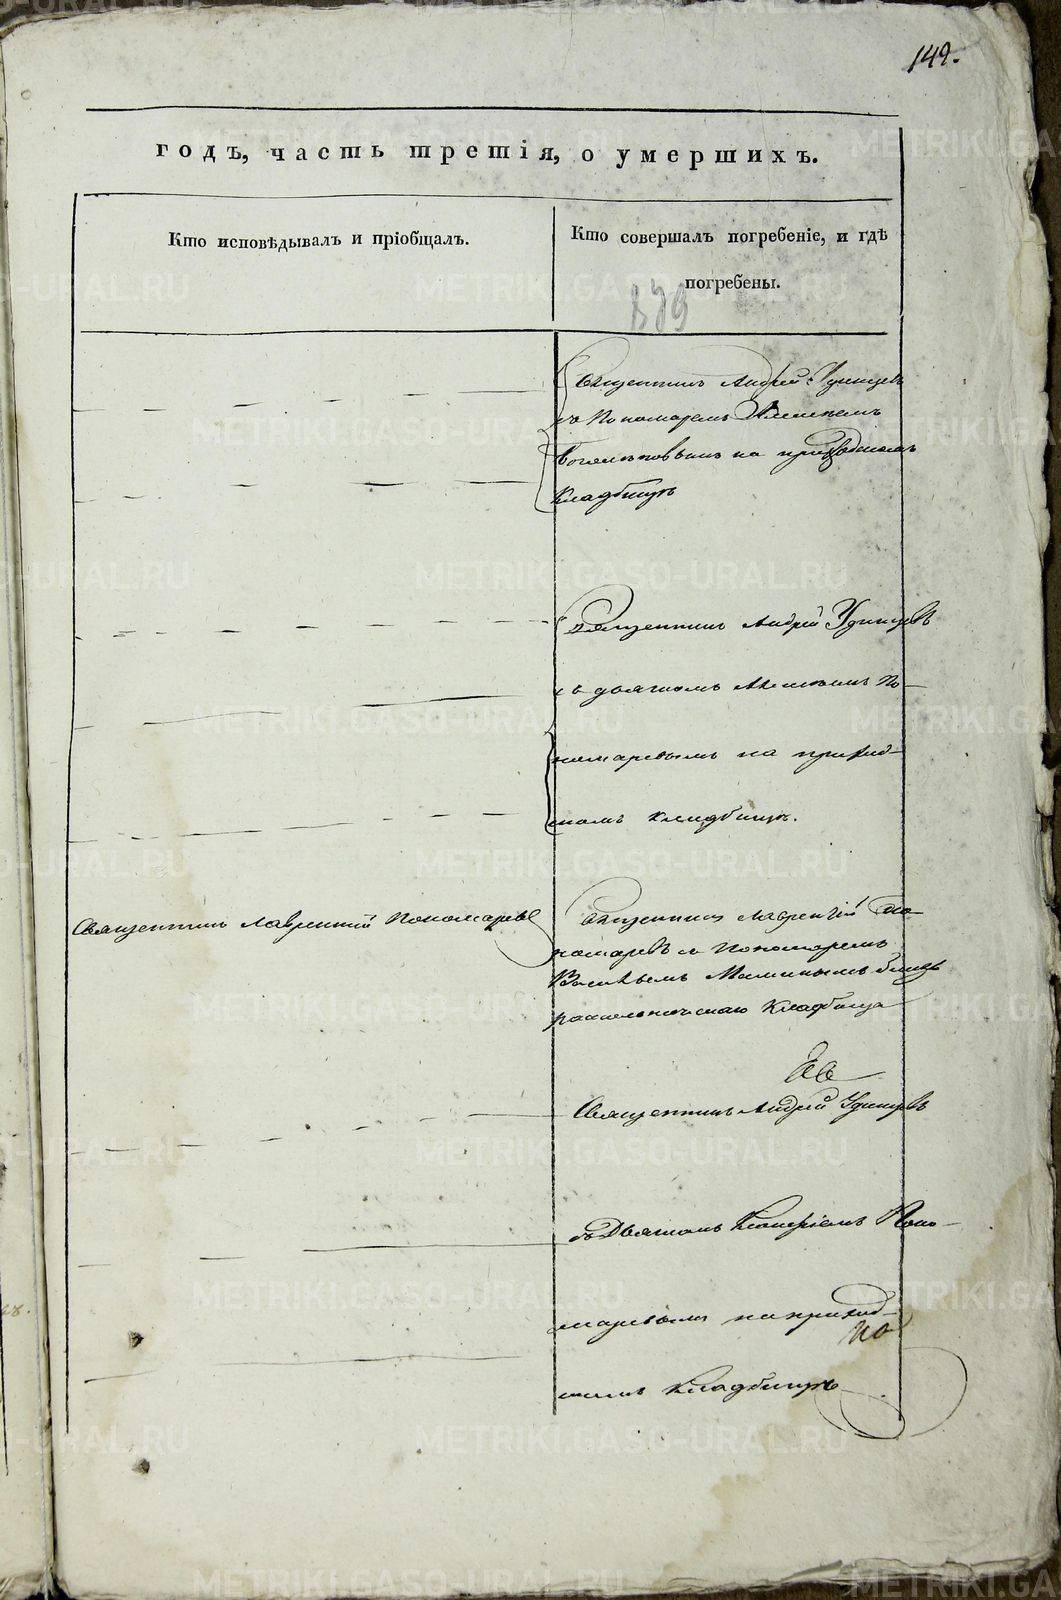 149.
годъ, часть третія, о умершихъ.
Кто исповѣдывалъ и пріобщалъ.
Кто совершалъ погребеніе, и гдѣ
погребены.
Священникъ Андрей Удинцевъ
съ Пономаремъ
на приходскомъ
Кладбищѣ
Священникъ Андрей Удинцевъ
съ дьячкомъ По-
номаревымъ на приход-
скомъ кладбищѣ.
Священникъ Лаврентій Пономаревъ
Священникъ Лаврентій По-
номаревъ съ Пономаремъ
Васильемъ Маминымъ близь
раскольническаго Кладбища
Священникъ Андрей Удинцевъ
съ Дьячкомъ Поно-
маревымъ на приход-
скомъ Кладбищѣ
METRIKI.GASO-URAL.RU